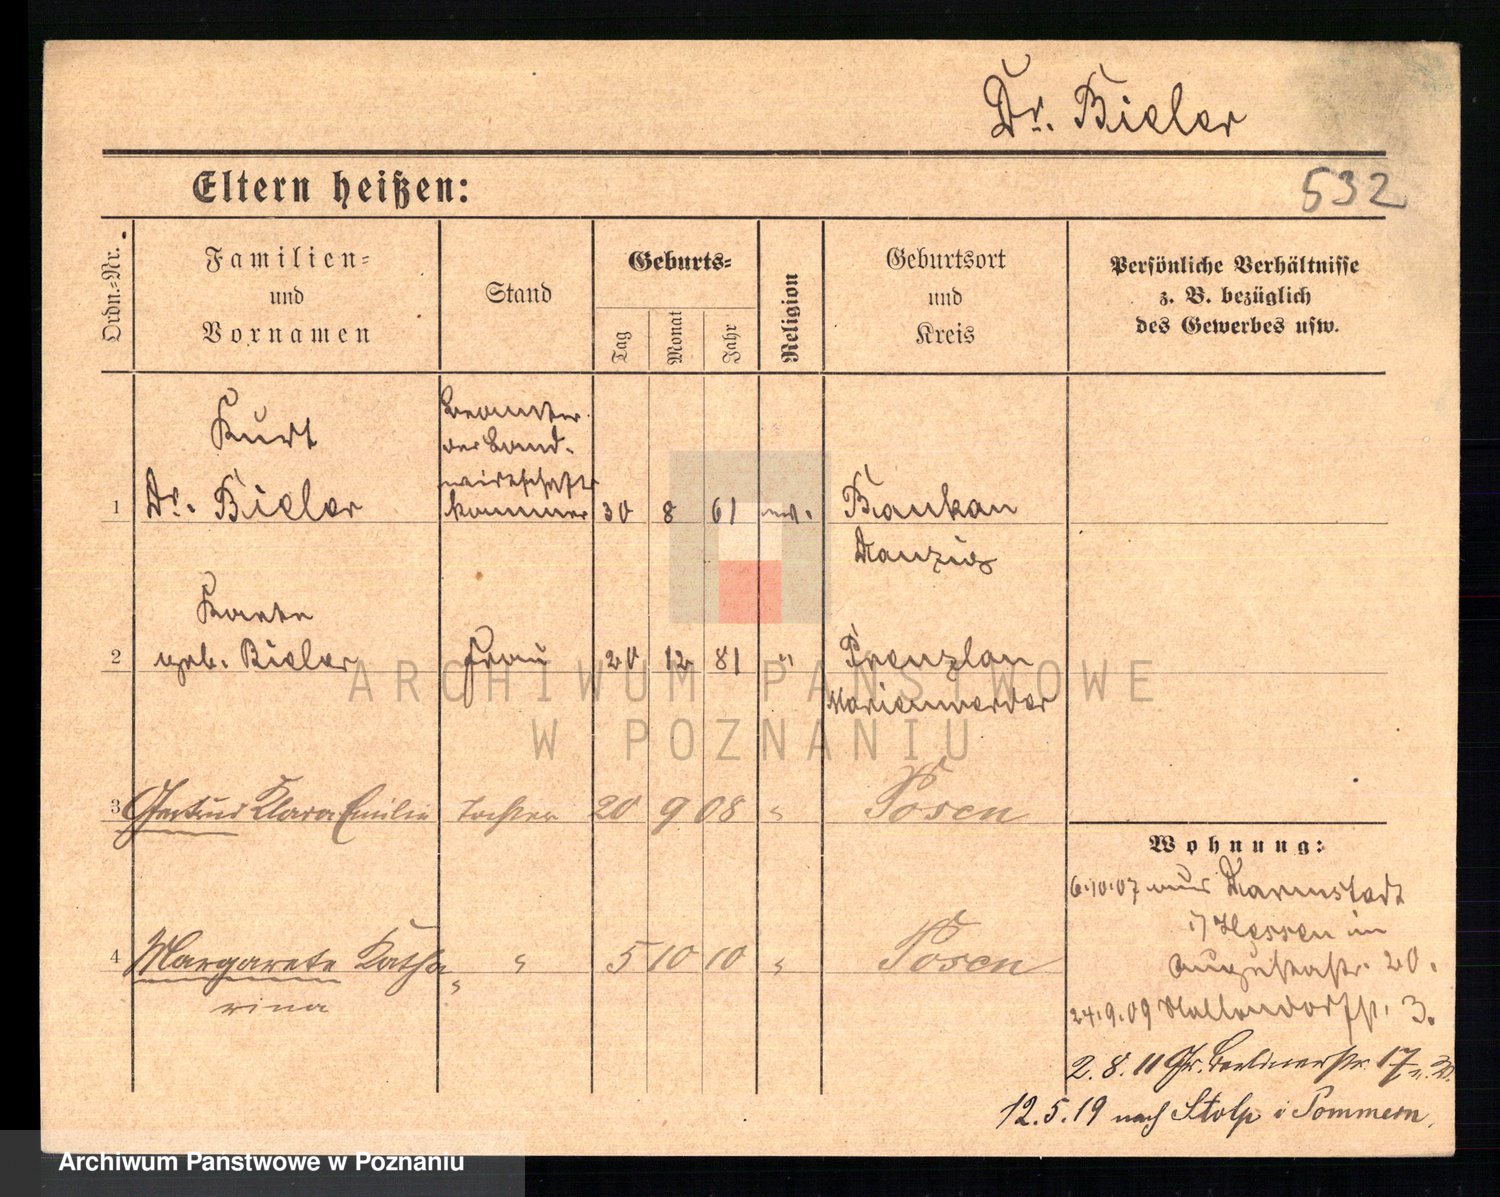 Dr. Bieler
Eltern heißen:
532
Ordn.-Nr.
Familien-
und
Vornamen
Stand
Geburts-
Tag
Monat
Jahr
Religion
Geburtsort
und
Kreis
Persönliche Verhältnisse
z. B. bezüglich
des Gewerbes usw.
Kurt
1 Dr. Bieler
Beamter
der Land-
wirtschafts
kammer
30 8 61 ev. Bankau
Danzig
Kaete
2 geb. Bieler Frau 20 12 81 " Prenzlau
Marienwerder
3 Gertrud Klara Emilie Tochter 20 9 08 " Posen
4 Margarete Katha " 5 10 10 " Posen
rina
Wohnung:
6.10.07 aus Darmstadt
i/Hessen in
Augustastr. 20.
24.9.09 3.
2.8.11 Gr. Berlinerstr. 17
12.5.19 nach Stolp i Pommern.
ARCHIWUM PAŃSTWOWE
W POZNANIU
Archiwum Państwowe w Poznaniu